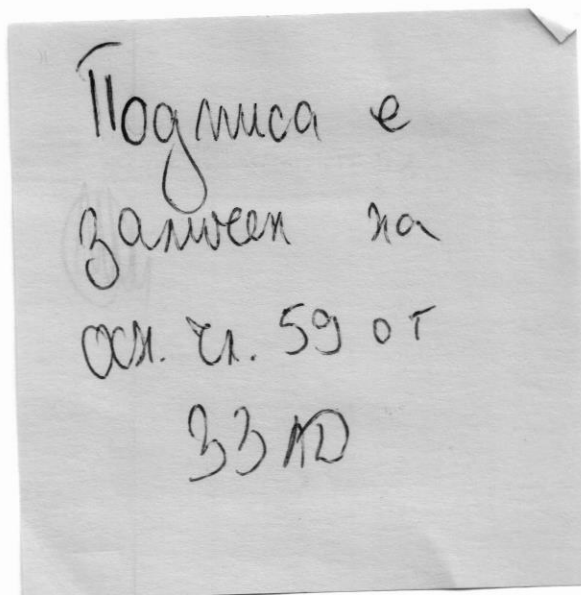 Подписа е
заличен на
осн. чл. 59 от
ЗЗЛД